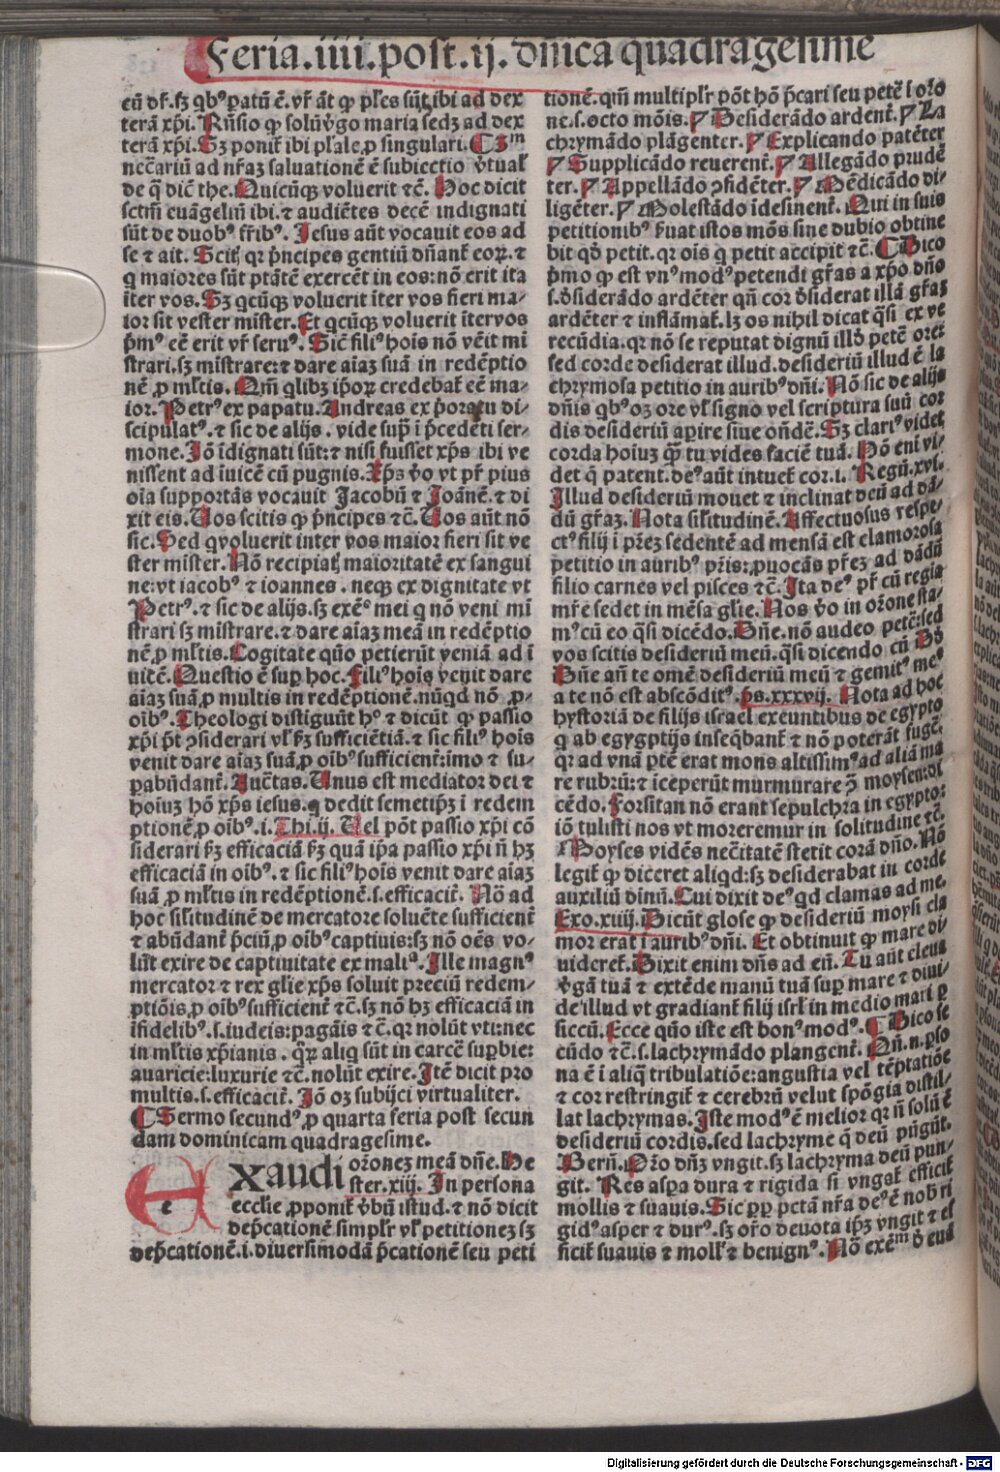 Feria.iiii.post.ij.dn̄ica quadragesime
eū dr̄.sꝫ qb⁹ ꝑatū ē.vr̄ āt ꝙ ꝑl̄es sūt ibi ad dex
terā xp̄i. Rn̄sio ꝙ solū v̓go maria sedꝫ ad dex
terā xp̄i. Sꝫ ponit̄ ibi pl̄ale ꝓ singulari. ¶ Iᵐ
neccāriū ad nr̄aꝫ saluationē ē subiectio v̓tual̄
de q̄ dic̄ the. Quicūqꝫ voluerit ⁊c̄. Hoc dicit
sctm̄ euāgeliū ibi.⁊ audiētes decē indignati
sūt de duob⁹ fr̄ib⁹. Iesus aūt vocauit eos ad
se ⁊ ait. Scit̄ qꝛ p̄ncipes gentiū dn̄ant̄ eoꝝ.⁊
q maiores sūt ptātē exercēt in eos:nō erit ita
īter vos. Sꝫ qcūqꝫ voluerit īter vos fieri ma/
ior sit vester mīster. Et qcūqꝫ voluerit ītervos
p̄m⁹ eē erit vr̄ seru⁹. Sic̄ fili⁹ hois nō vēit mī
strari.sꝫ mīstrare:⁊ dare aīaꝫ suā in redēptio
nē ꝓ ml̄tis. Qm̄ qlibꝫ ip̄oꝝ credebat̄ eē ma/
ior. Petr⁹ ex papatu. Andreas ex p̄oratu di/
scipulat⁹.⁊ sic de alijs. vide sup̄ ī p̄cedēti ser/
mone. Iō īdignati sūt:⁊ nisi fuisset xp̄s ibi ve
nissent ad īuicē cū pugnis. Xp̄s v̓o vt pr̄ pius
oīa supportās vocauit Jacobū ⁊ Joānē.⁊ di
xit eis. Uos scitis ꝙ p̄ncipes ⁊c̄. Uos aūt nō
sic. Sed qvoluerit inter vos maior fieri sit ve
ster mīster. Nō recipiat̄ maioritatē ex sangui
ne:vt iacob⁹ ⁊ ioannes. neqꝫ ex dignitate vt
Petr⁹.⁊ sic de alijs.sꝫ exē⁰ mei q nō veni mī
strari sꝫ mīstrare.⁊ dare aīaꝫ meā in redēptio
nē ꝓ ml̄tis. Cogitate quō petierūt veniā ad ī
uicē. Questio ē sup̄ hoc. Fili⁹ hois venit dare
aīaꝫ suā ꝓ multis in redēptionē.nūqd nō ꝓ
oīb⁹. Theologi distīguūt h⁰ ⁊ dicūt ꝙ passio
xp̄i p̄t ꝯsiderari vl̄ ẜꝫ sufficiētiā.⁊ sic fili⁹ hois
venit dare aīaꝫ suā ꝓ oīb⁹ sufficient̄:imo ⁊ su
ꝑabūdant̄. Auctas. Unus est mediator dei ⁊
hoiuꝫ hō xp̄s iesus.q dedit semetip̄ꝫ ī redem
ptionē ꝓ oīb⁹.i. Thi.ij. Uel pōt passio xp̄i cō
siderari ẜꝫ efficaciā ẜꝫ quā ip̄a passio xp̄i n̄ hꝫ
efficaciā in oīb⁹.⁊ sic fili⁹ hois venit dare aīaꝫ
suā ꝓ ml̄tis in redēptionē.i.efficacit̄. Nō ad
hoc sil̄itudinē de mercatore soluēte sufficient̄
⁊ abūdant̄ p̄ciū ꝓ oīb⁹ captiuis:sꝫ nō oēs vo/
lūt exire de captiuitate ex maliᵃ. Ille magn⁹
mercator ⁊ rex gl̄ie xp̄s soluit preciū redem/
ptiōis ꝓ oīb⁹ sufficient̄ ⁊c̄.sꝫ nō hꝫ efficaciā in
īfidelib⁹.s.iudeis:pagāis ⁊c̄.qꝛ nolūt vti:nec
in ml̄tis xp̄ianis. qꝛ aliq sūt in carcē sup̄bie:
auaricie:luxurie ⁊c̄.nolūt exire. Itē dicit pro
multis.i.efficacit̄. Iō oꝫ subijci virtualiter.
¶ Sermo secund⁹ ꝓ quarta feria post secun
dam dominicam quadragesime.
EXaudi or̄onez meā dn̄e. He
e
ster.xiij. In persona
eccl̄ie ꝓponit̄ v̓bū istud.⁊ nō dicit
dep̄cationē simpl̄r vl̄ petitiones sꝫ
dep̄cationē.i.diuersimodā p̄cationē seu peti
tionē.qm̄ multipl̄r pōt hō p̄cari seu petē ī or̄o
ne.s.octo mōis. Desiderādo ardent̄. La
chrymādo plāgenter. Explicando patēter
Supplicādo reuerent̄. Allegādo prudē
ter. Appellādo ꝯfidēter. Mēdicādo di/
ligēter. Molestādo īdesinent̄. Qui in suis
petitionib⁹ ẜuat istos mōs sine dubio obtine
bit qd̓ petit.qꝛ oīs q petit accipit ⁊c̄. ¶ Dico
p̄mo ꝙ est vn⁹ mod⁹ petendi gr̄as a xp̄o dn̄o
s.d̓siderādo ardēter qn̄ cor d̓siderat illā gr̄aꝫ
ardēter ⁊ inflāmat̄.lꝫ os nihil dicat q̄si ex ve
recūdia.qꝛ nō se reputat dignū illd̓ petē ore:
sed corde desiderat illud.desideriū illud ē la
chrymosa petitio in aurib⁹ dn̄i. Nō sic de alijs
dn̄is qb⁹ oꝫ ore vl̄ signo vel scriptura suū cor
dis desideriū aꝑire siue on̄dē. Sꝫ clari⁹ videt
corda hoiuꝫ ꝙ tu vides faciē tuā. Hō eni vi/
det q̄ patent.de⁹ aūt intuet̄ cor.i. Regū.xvi.
Illud desideriū mouet ⁊ inclinat deū ad dā/
dū gr̄aꝫ. Nota sil̄itudinē. Affectuosus respe/
ct⁹ filij ī pr̄eꝫ sedentē ad mensā est clamorosa
petitio in aurib⁹ pr̄is:ꝓuocās pr̄eꝫ ad dādū
filio carnes vel pisces ⁊c̄. Ita de⁹ pr̄ cū regia
mr̄e sedet in mēsa gl̄ie. Nos v̓o in or̄one sta/
m⁹ cū eo q̄si dicēdo. Dn̄e.nō audeo petē:sed
vos scitis desideriū meū.q̄si dicendo cū Dd̓
Dn̄e an̄ te omē desideriū meū ⁊ gemit⁹ me⁹
a te nō est abscōdit⁹.ps.xxxvij. Nota ad hoc
hystoriā de filijs israel exeuntibus de egypto
q ab egygptijs inseq̄bant̄ ⁊ nō poterāt fugē.
qꝛ ad vnā ptē erat mons altissim⁹ ad aliā ma
re rubrū:⁊ īceperūt murmurare ꝯ̄ moysen:di
cēdo. Forsitan nō erant sepulchra in egypto:
iō tulisti nos vt moreremur in solitudine ⁊c̄.
Moyses vidēs neccītatē stetit corā dn̄o. Nō
legit̄ ꝙ diceret aliqd:sꝫ desiderabat in corde
auxiliū diuinū. Cui dixit de⁹ qd clamas ad me.
Exo.xiiij. Dicūt glose ꝙ desideriū moysi cla
mor erat ī aurib⁹ dn̄i. Et obtinuit ꝙ mare di
uideret̄. Dixit enim dn̄s ad eū. Tu aūt eleua
v̓gā tuā ⁊ extēde manū tuā sup̄ mare ⁊ diui/
de illud vt gradiant̄ filij isrl̄ in medio mari ꝑ
siccū. Ecce quō iste est bon⁹ mod⁹. ¶ Dico se
cūdo ⁊c̄.s.lachrymādo plangent̄. Qn̄.n.ꝑso
na ē ī aliq̄ tribulatiōe:angustia vel tēptatiōe
⁊ cor restringit̄ ⁊ cerebrū velut spōgia distil/
lat lachrymas. Iste mod⁹ ē melior qꝛ n̄ solū ē
desideriū cordis.sed lachryme q̄ deū pūgūt.
Bern̄. Or̄o dn̄ꝫ vngit.sꝫ lachryma deū pun/
git. Res aspa dura ⁊ rigida si vngat̄ efficit̄
mollis ⁊ suauis. Sic ꝓp̄ pctā nr̄a de⁹ ē nob̄ ri
gid⁹ asper ⁊ dur⁹.sꝫ or̄o deuota ip̄ꝫ vngit ⁊ ef
ficit̄ suauis ⁊ moll̄ ⁊ benign⁹. Nō exēᵐ d̓ eua
Digitalisierung gefördert durch die Deutsche Forschungsgemeinschaft - DFG